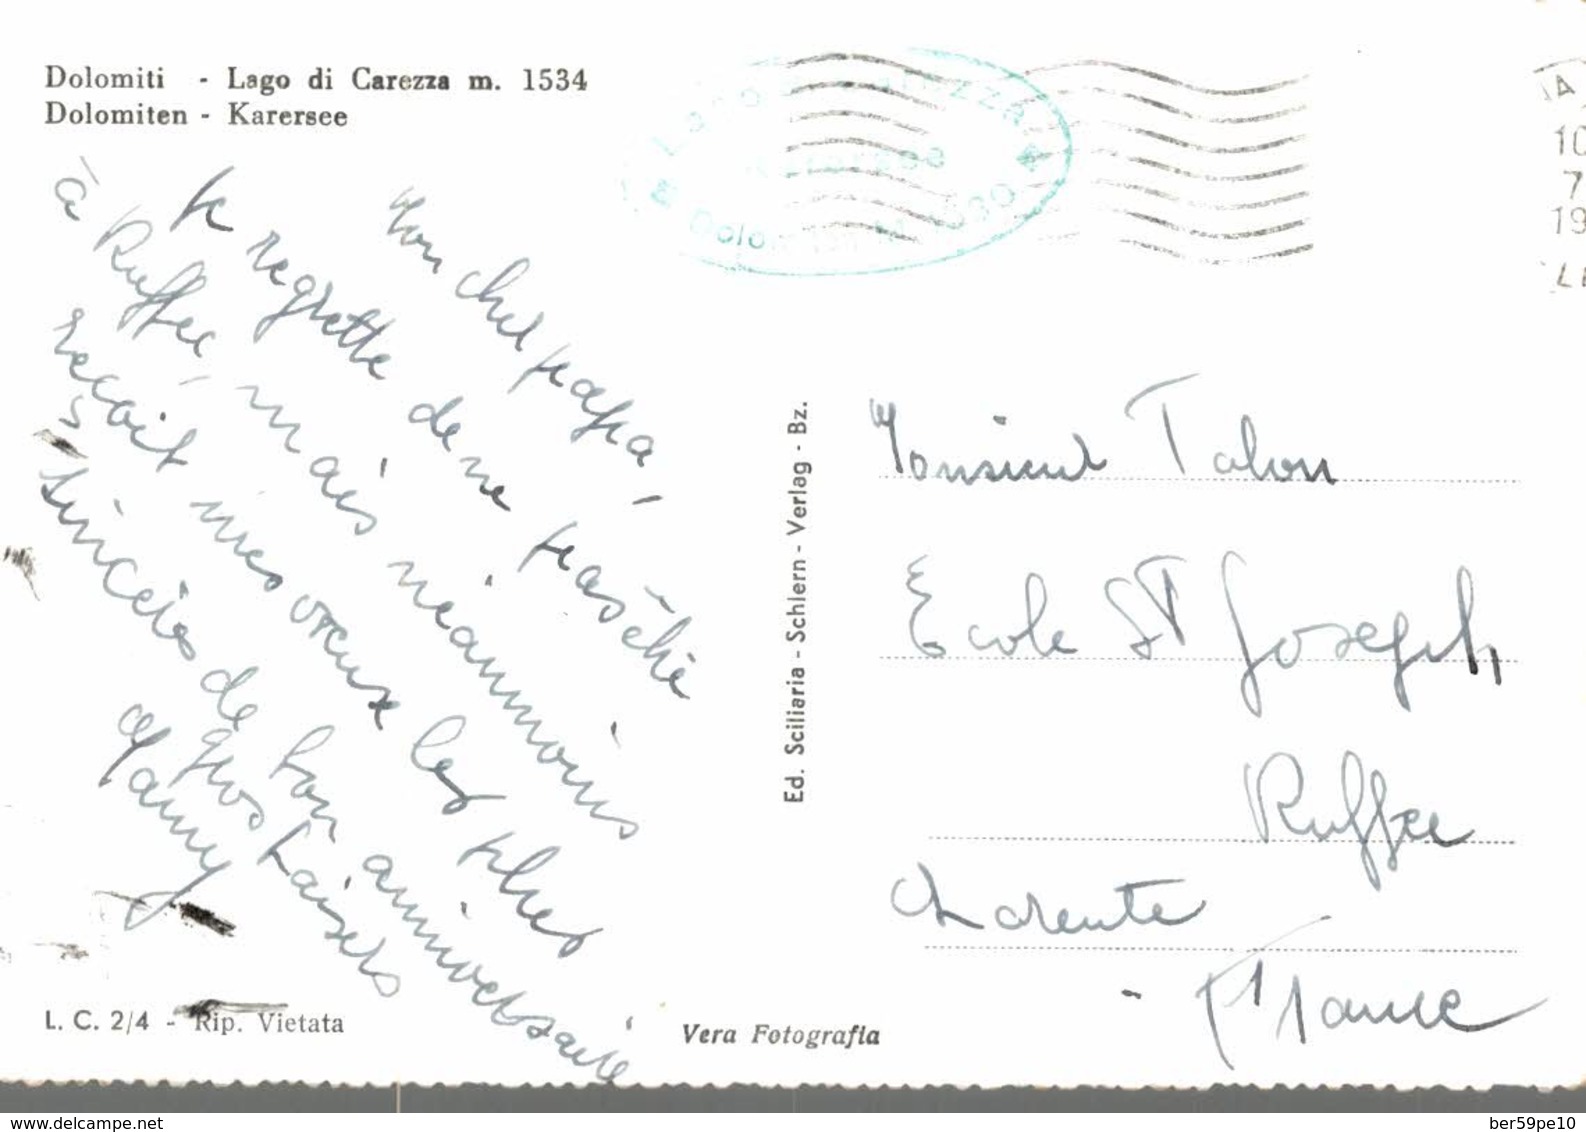 Dolomiti - Lago di Carezza m. 1534
Dolomiten - Karersee
Mon cher papa,
Je regrette de ne pas être
à Ruffec, mais néanmoins
reçoit mes vœux les plus
sincères de bon anniversaire
gros baisers
Many
Ed. Sciliaria - Schlern - Verlag - Bz.
Monsieur Talon
Ecole St Joseph
Ruffec
Charente
- France
L. C. 2/4 - Rip. Vietata
Vera Fotografia
delcampe.net
ber59pe10